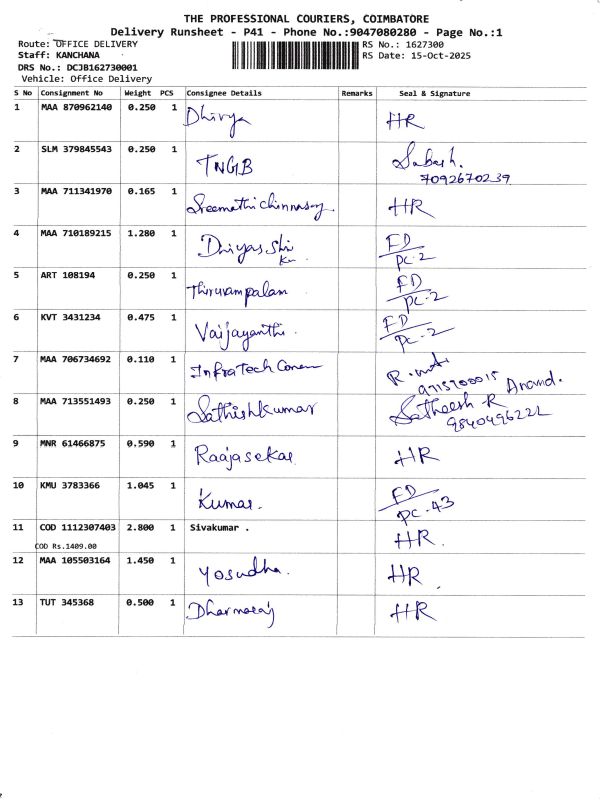 THE PROFESSIONAL COURIERS, COIMBATORE
Delivery Runsheet - P41 - Phone No.:9047080280 - Page No.:1
Route: OFFICE DELIVERY
RS No.: 1627300
Staff: KANCHANA
RS Date: 15-Oct-2025
DRS No.: DCJB162730001
Vehicle: Office Delivery
S No Consignment No Weight PCS Consignee Details Remarks Seal & Signature
1 MAA 870962140 0.250 1 Dhivya HR
2 SLM 379845543 0.250 1 TNGB Sabesh.
7092670239
3 MAA 711341970 0.165 1 Sreemathi Chinnasamy HR
4 MAA 710189215 1.280 1 Dhiyas Shri FD
PC-2
5 ART 108194 0.250 1 Thiruvampalam FD
PC-2
6 KVT 3431234 0.475 1 Vaijayanthi. FD
PC-2
7 MAA 706734692 0.110 1 InfraTech
9715700015 Anand.
8 MAA 713551493 0.250 1 Sathishkumar Satheesh R
9840496222
9 MNR 61466875 0.590 1 Raajasekar HR
10 KMU 3783366 1.045 1 Kumar. FD
PC-43
11 COD 1112307403 2.800 1 Sivakumar . HR.
COD Rs.1409.00
12 MAA 105503164 1.450 1 Yosudha. HR
13 TUT 345368 0.500 1 Dharmaraj HR